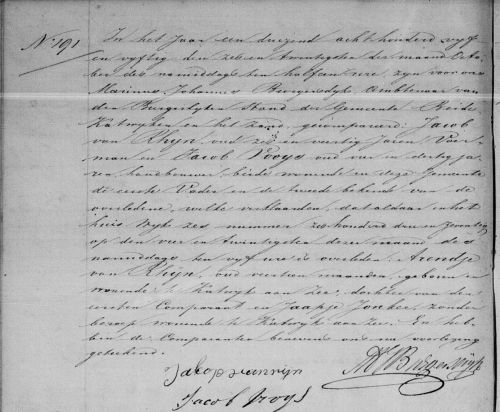 N: 191
In het Jaar een duizend acht honderd vyf
en vyftig den zes en twintigsten der maand Octo
ber des namiddags ten half een ure, zyn voor ons
Marinus Johannes Ambtenaar van
den Burgerlyken Stand der Gemeente Beide
Katwyken en het Zand, gecompareerd: Jacob
van Rhyn, oud zes en veertig Jaren Voer
man en Jacob Vooys oud vier en dertig ja
ren, landbouwer, beide wonende in deze Gemeente
de eerste Vader en de tweede bekende van de
overledene, welke verklaarden, dat aldaar in het
huis Wyk zes nummer zes honderd drie en zeventig
op den vier en twintigsten dezer maand des
namiddags ten vyf ure is overleden Arendje
van Rhyn, oud veertien maanden, geboren en
wonende te Katwyk aan Zee: dochter van den
eersten Comparant en Jaapje Jonker, zonder
beroep wonende te Katwyk aan Zee. En heb
ben de Comparanten benevens ons na voorlezing
geteekend.
Jakop van rijn
Jacob vooys